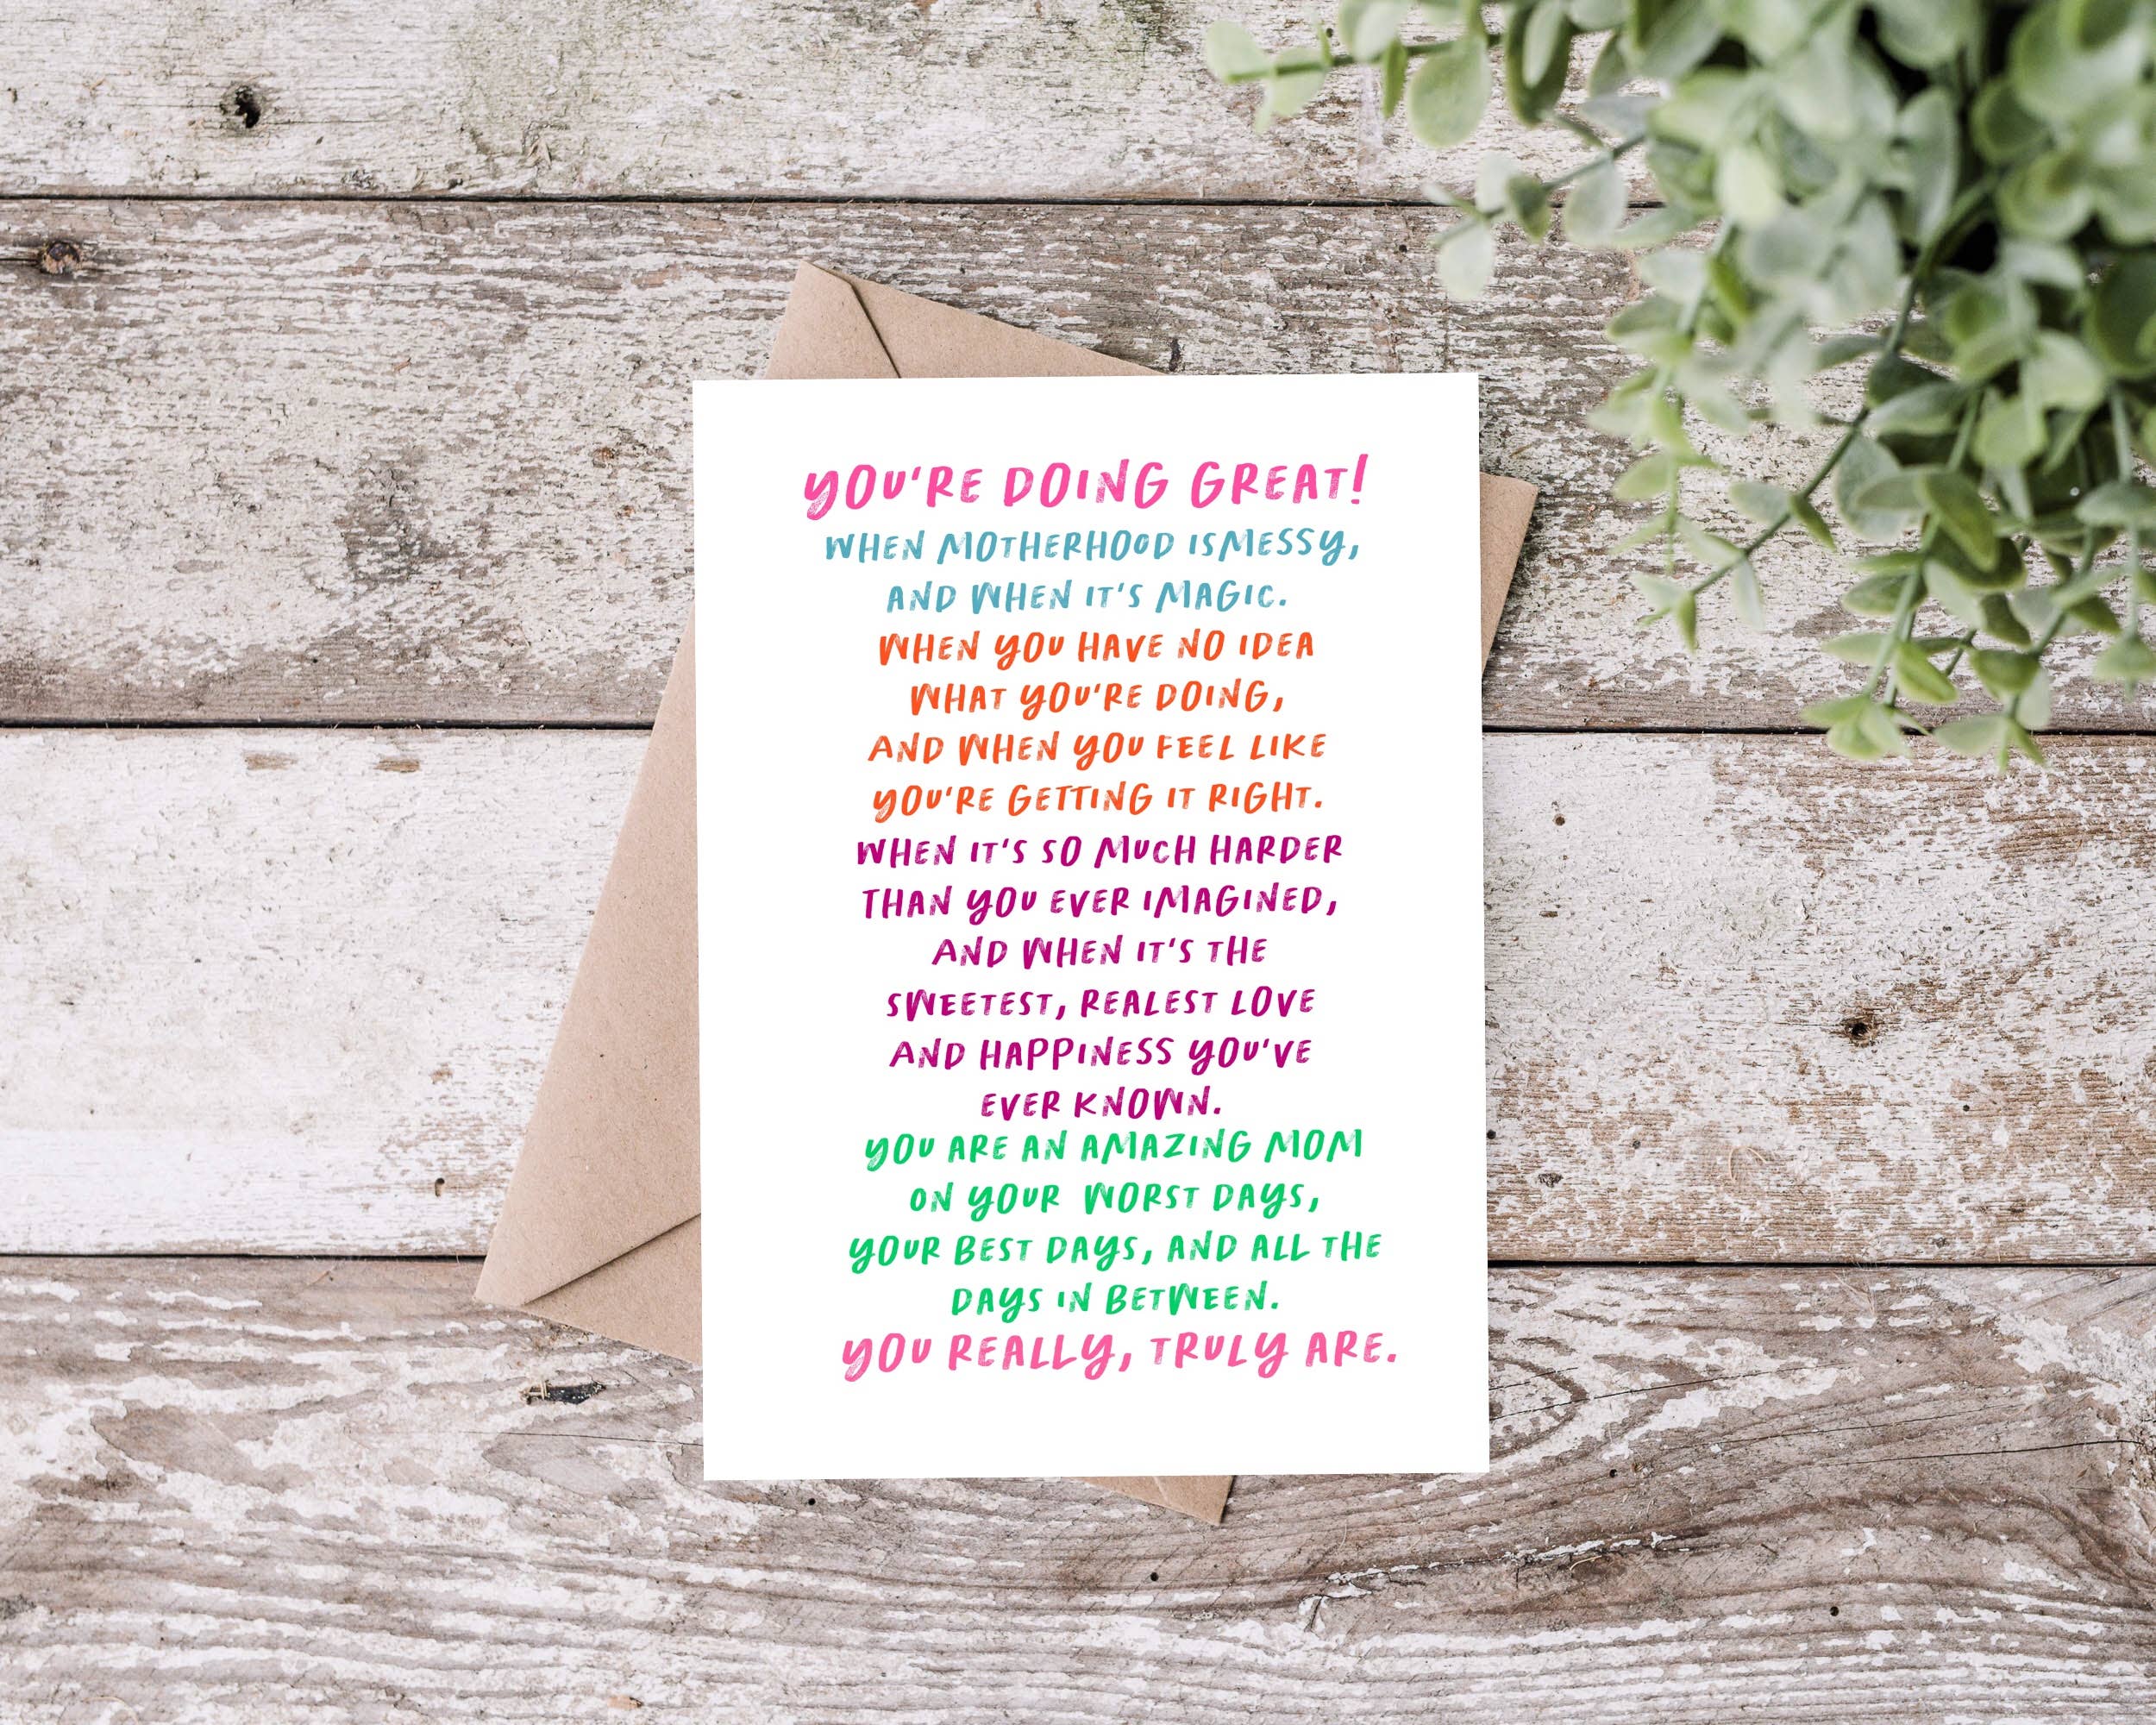 YOU'RE DOING GREAT!
WHEN MOTHERHOOD ISMESSY,
AND WHEN IT'S MAGIC.
WHEN YOU HAVE NO IDEA
WHAT YOU'RE DOING,
AND WHEN YOU FEEL LIKE
YOU'RE GETTING IT RIGHT.
WHEN IT'S SO MUCH HARDER
THAN YOU EVER IMAGINED,
AND WHEN IT'S THE
SWEETEST, REALEST LOVE
AND HAPPINESS YOU'VE
EVER KNOWN.
YOU ARE AN AMAZING MOM
ON YOUR WORST DAYS,
YOUR BEST DAYS, AND ALL THE
DAYS IN BETWEEN.
YOU REALLY, TRULY ARE.